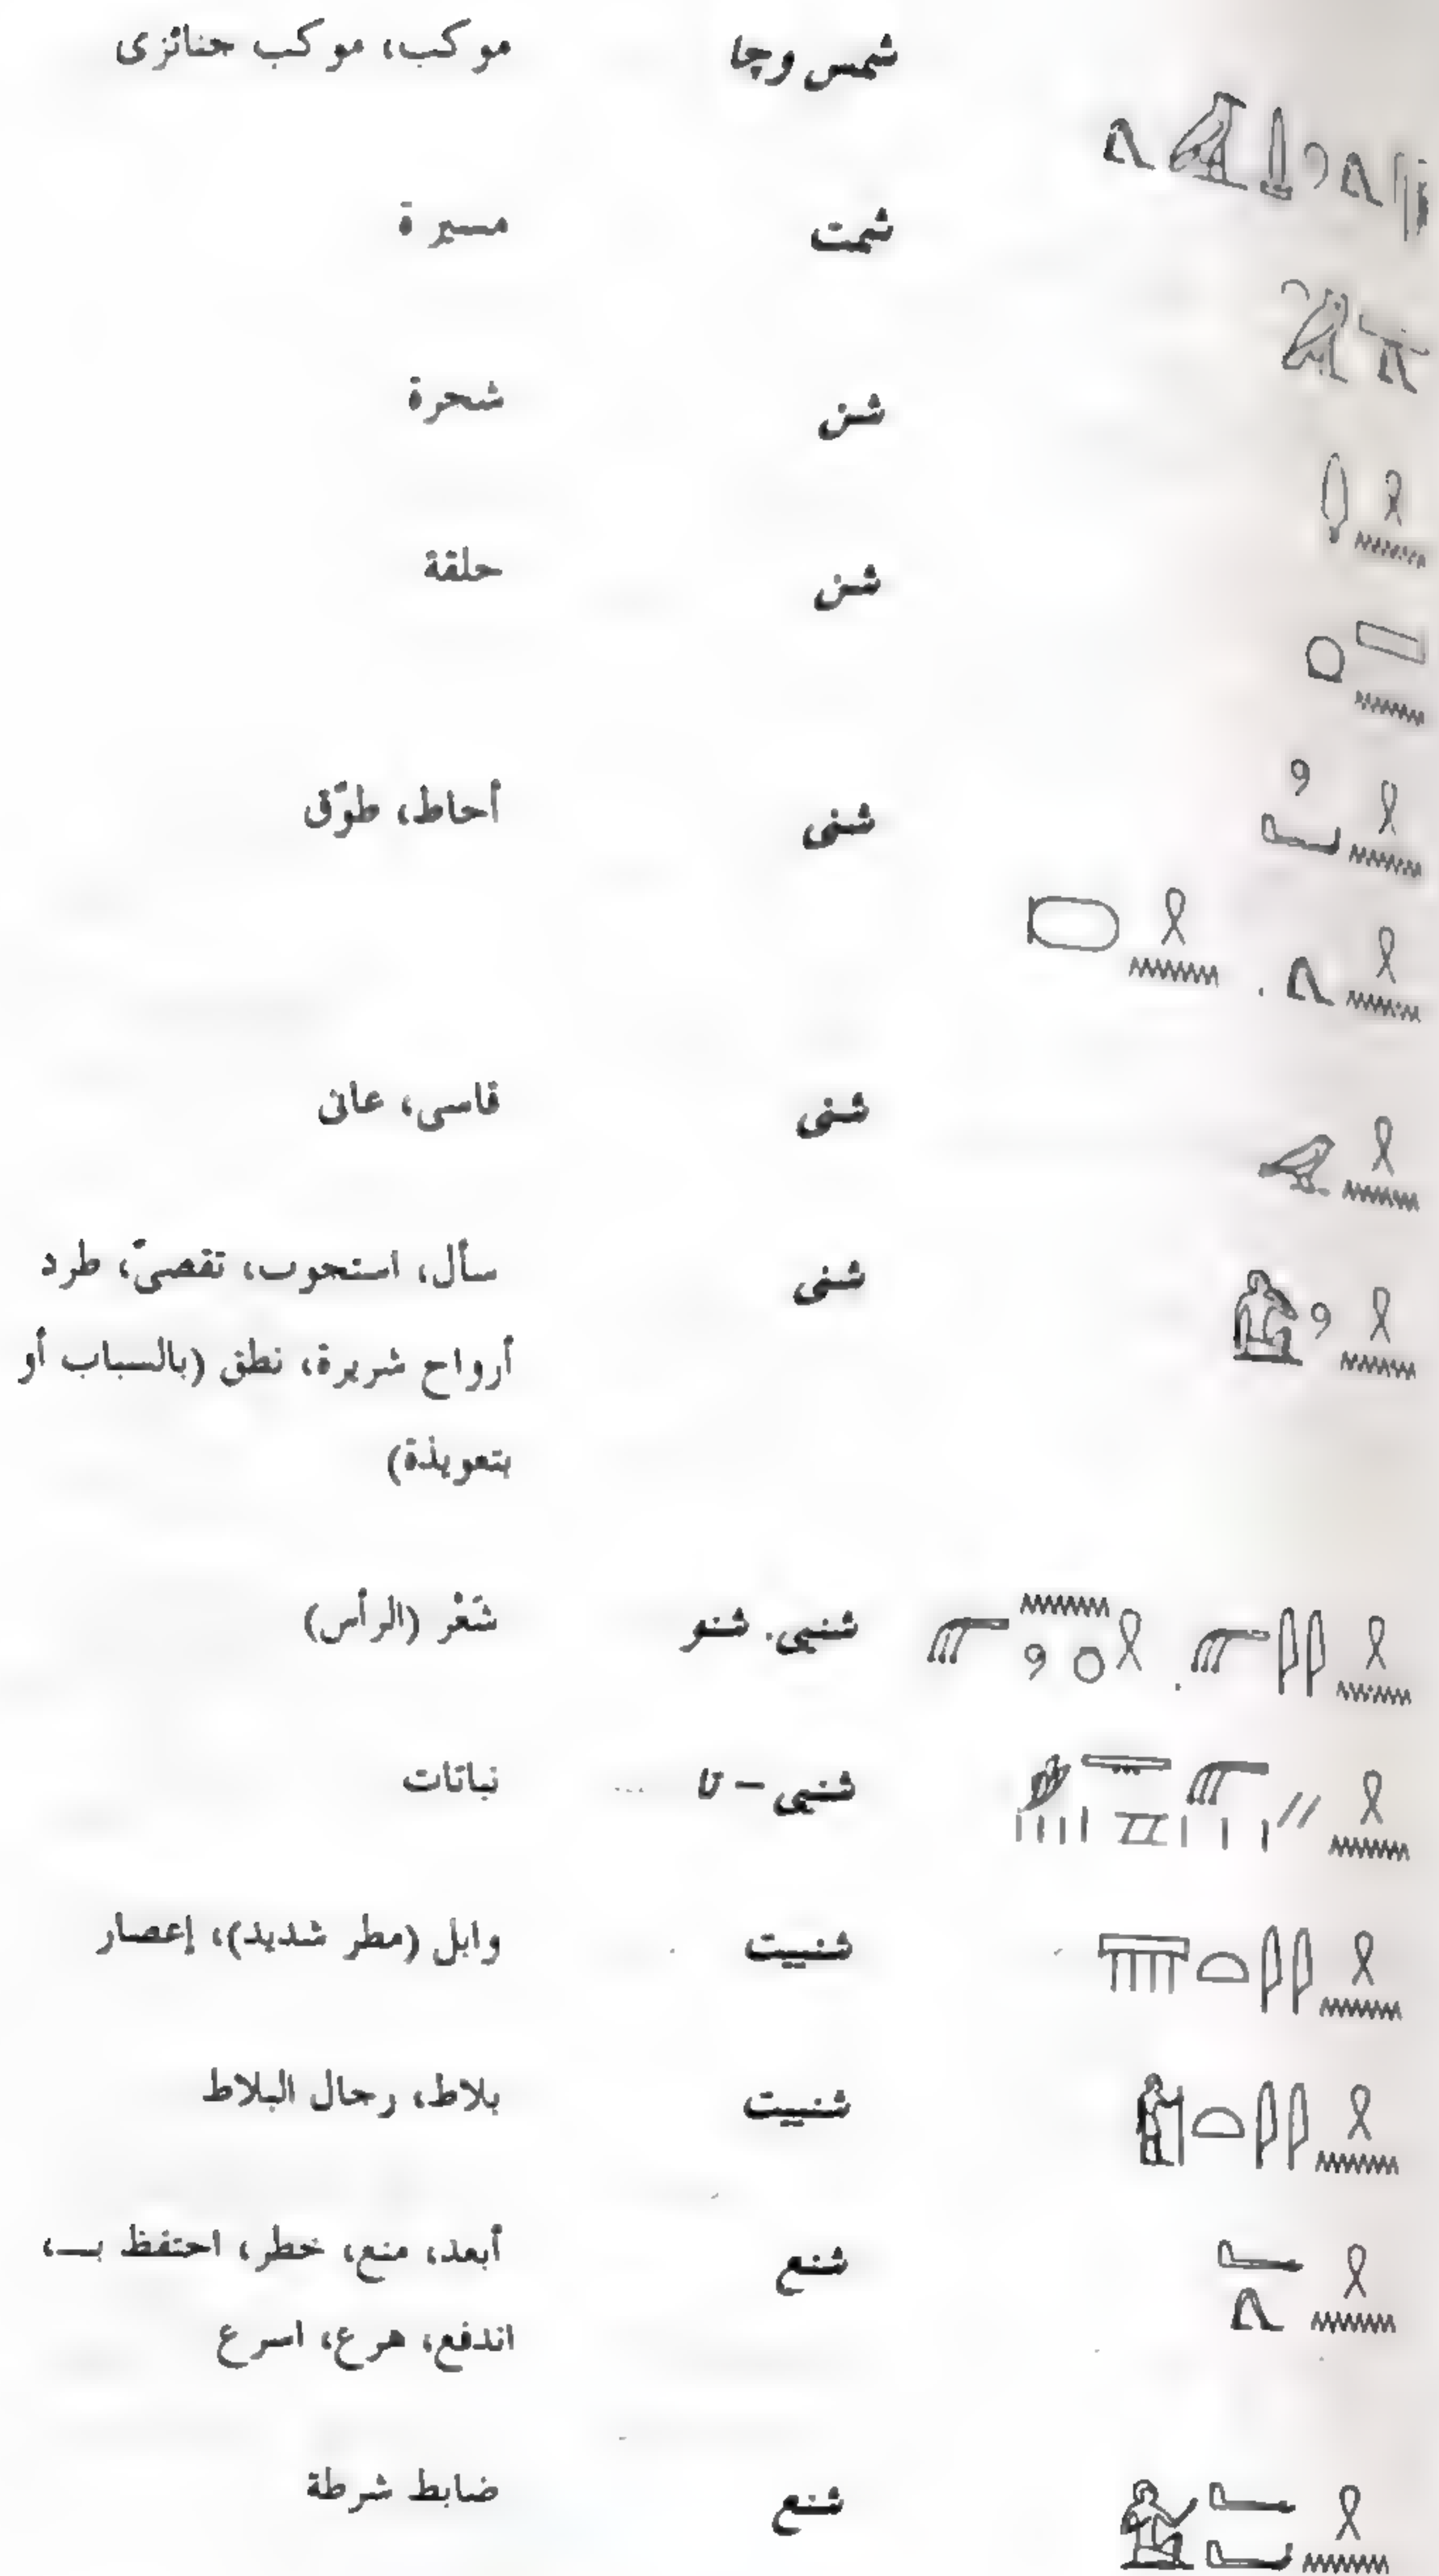 شمس وچا موكب، موكب جنائزى
شمت مسيرة
شن شجرة
شن حلقة
شنى أحاط، طوّق
شنى قاسى، عانى
شنى سأل، استجوب، تقصىّ، طرد
أرواح شريرة، نطق (بالسباب أو
بتعويذة)
شنيى. شنو شَعْر (الرأس)
شنيى – تا نباتات
شنييت وابل (مطر شديد)، إعصار
شنييت بلاط، رجال البلاط
شنع أبعد، منع، خطر، احتفظ بـ،
اندفع، هرع، اسرع
شنع ضابط شرطة